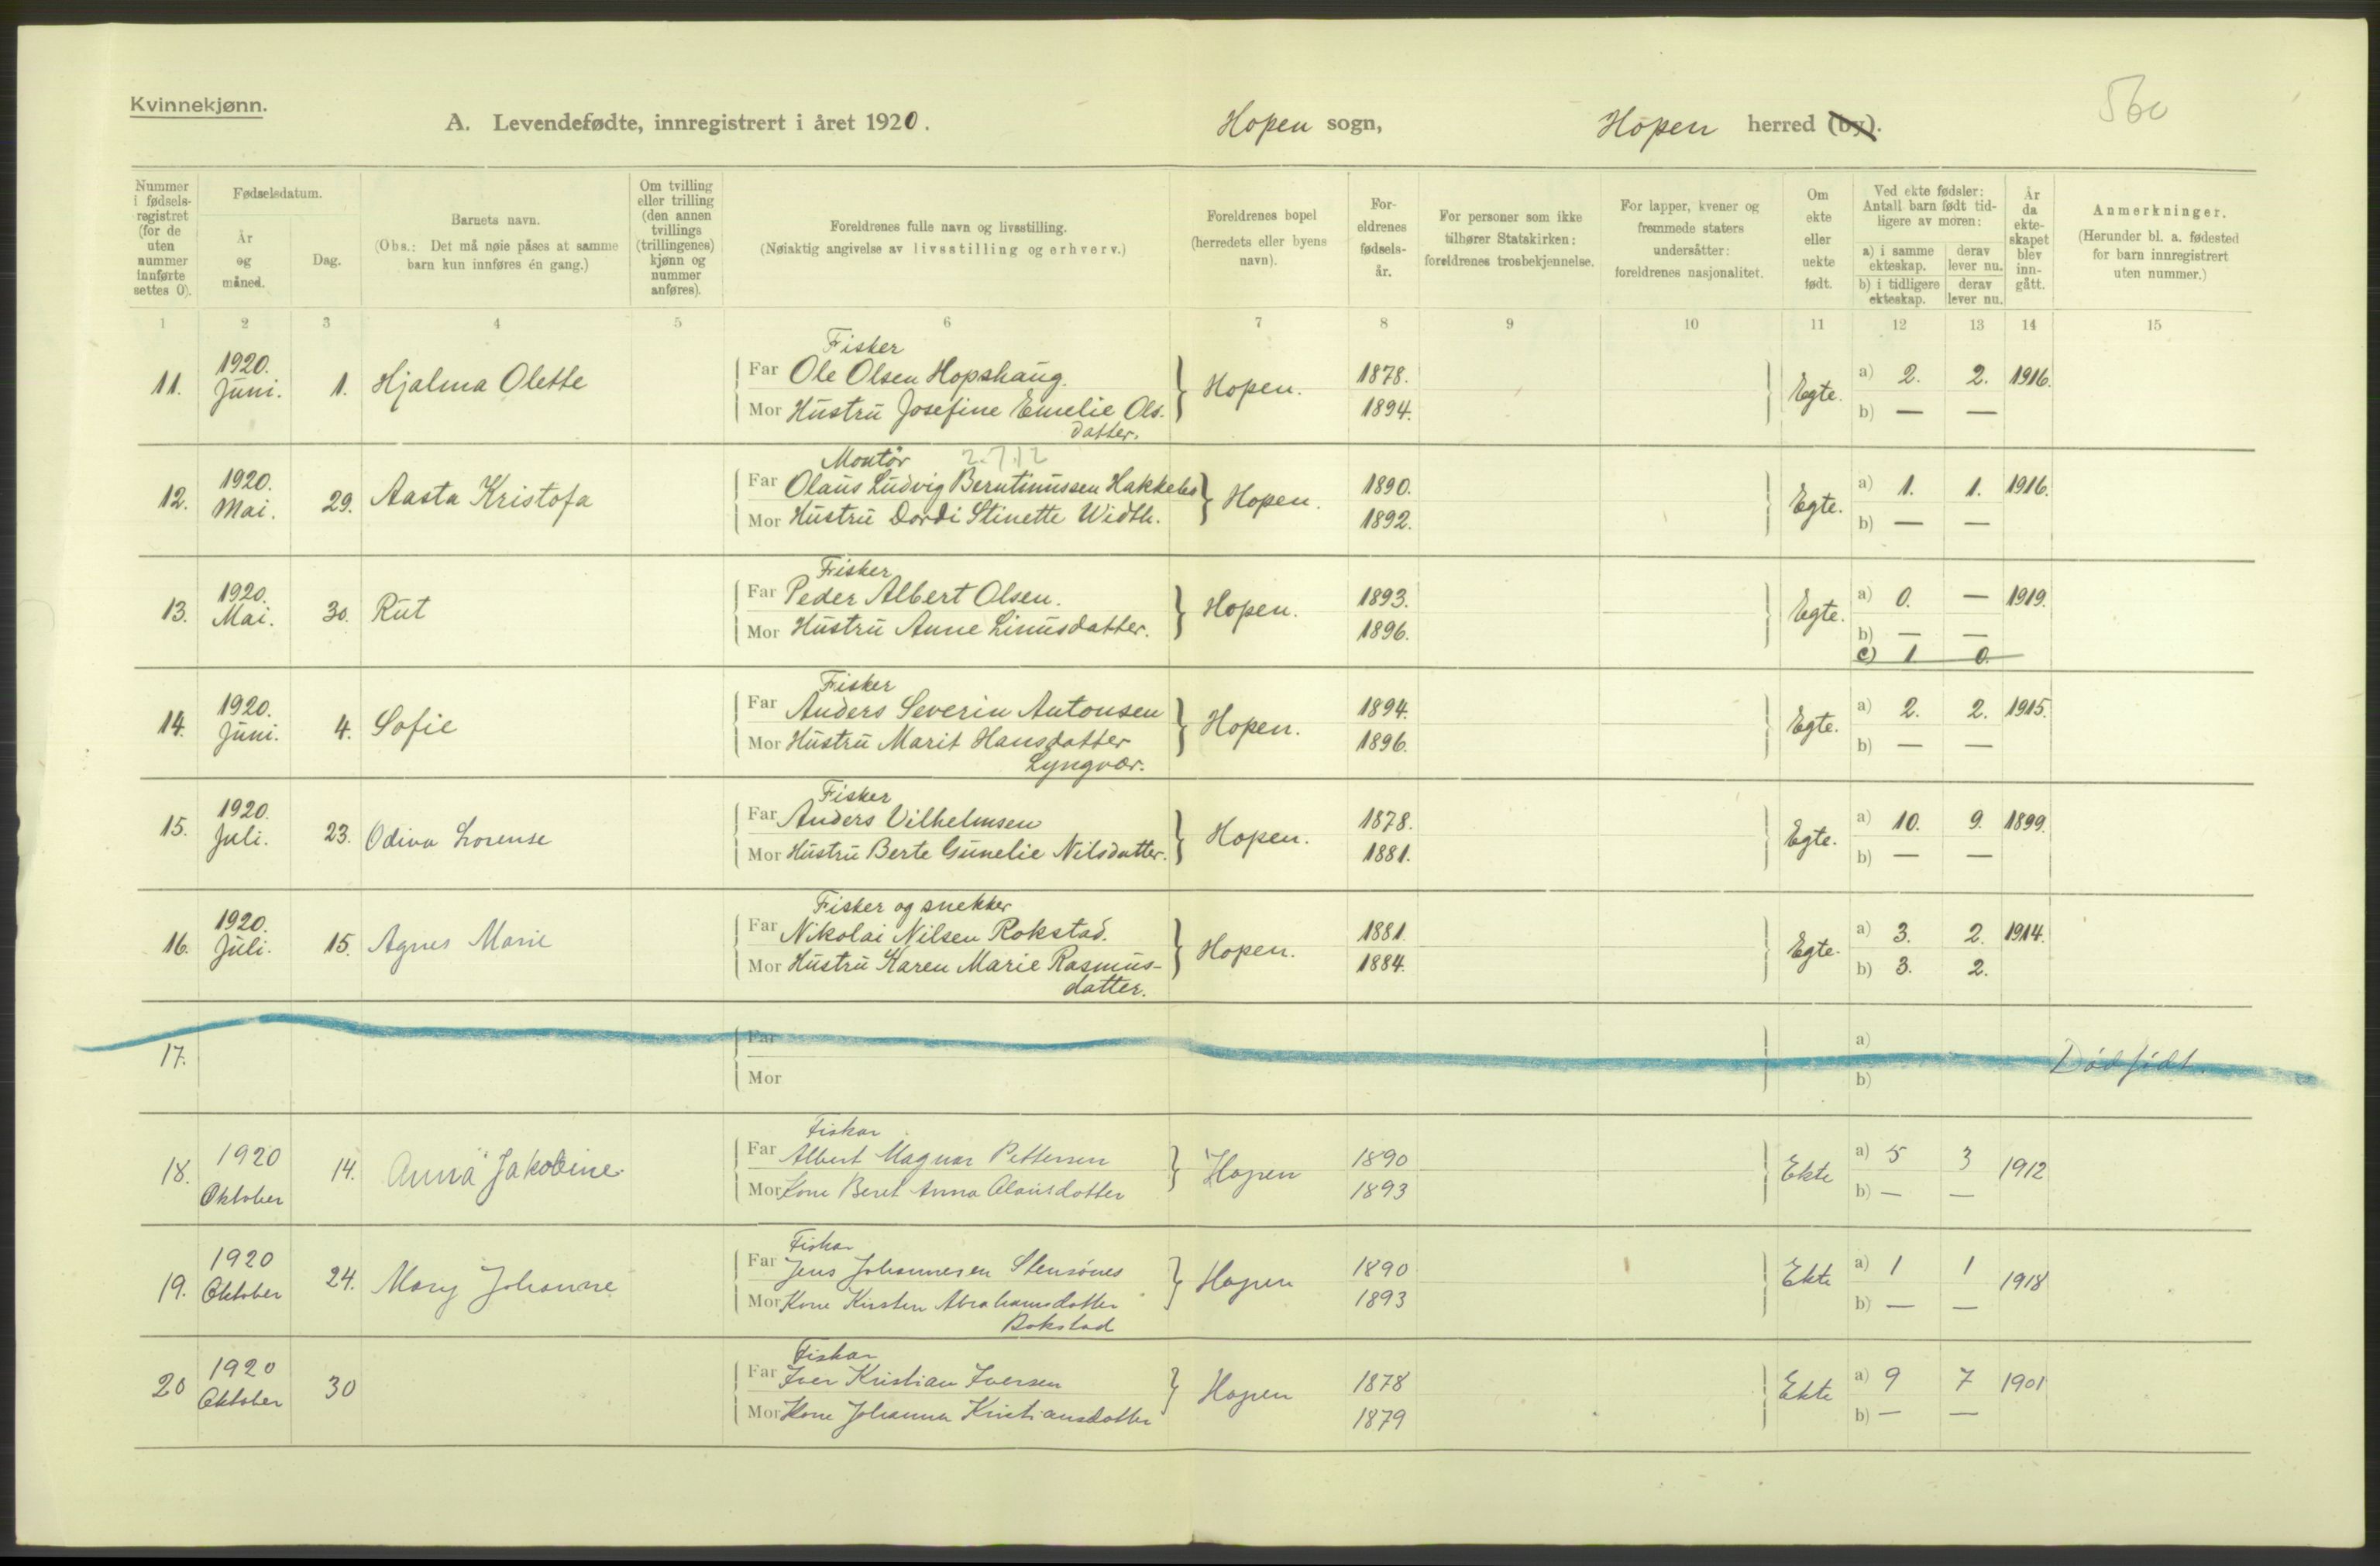 Kvinnekjønn.
A. Levendefødte, innregistrert i året 1920.
Hopen sogn,
Hopen herred (by).
560
Nummer i fødsels-registret (for de uten nummer innførte settes 0).
Fødselsdatum.
År og måned.
Dag.
Barnets navn.
(Obs.: Det må nøie påses at samme barn kun innføres én gang.)
Om tvilling eller trilling (den annen tvillings (trillingenes) kjønn og nummer anføres).
Foreldrenes fulle navn og livsstilling.
(Nøiaktig angivelse av livsstilling og erhverv.)
Foreldrenes bopel (herredets eller byens navn).
For-eldrenes fødsels-år.
For personer som ikke tilhører Statskirken: foreldrenes trosbekjennelse.
For lapper, kvener og fremmede staters undersåtter: foreldrenes nasjonalitet.
Om ekte eller uekte født.
Ved ekte fødsler: Antall barn født tid-ligere av moren:
a) i samme ekteskap.
derav lever nu.
b) i tidligere ekteskap.
derav lever nu.
År da ekte-skapet blev inn-gått.
Anmerkninger.
(Herunder bl. a. fødested for barn innregistrert uten nummer.)
1 2 3 4 5 6 7 8 9 10 11 12 13 14 15
Fisker
11. 1920. Juni. 1. Hjalma Olette Far Ole Olsen Hopshaug. Hopen. 1878. Egte. a) 2. 2. 1916.
Mor Hustru Josefine Emelie Ols- 1894. b) — —
datter.
Montør 2.7.12
12. 1920. Mai. 29. Aasta Kristofa Far Olaus Ludvig Berntinussen Hakkebo Hopen. 1890. Egte. a) 1. 1. 1916.
Mor Hustru Dordi Stinette Width. 1892. b) — —
Fisker
13. 1920. Mai. 30. Rut Far Peder Albert Olsen. Hopen. 1893. Egte. a) 0. — 1919.
Mor Hustru Anne Linusdatter. 1896. b) — —
c) 1 0.
Fisker
14. 1920. Juni. 4. Sofie Far Anders Severin Antonsen Hopen. 1894. Egte. a) 2. 2. 1915.
Mor Hustru Marit Hansdatter 1896. b) — —
Lyngvær.
Fisker
15. 1920. Juli. 23. Odina Lorense Far Anders Vilhelmsen Hopen. 1878. Egte. a) 10. 9. 1899.
Mor Hustru Berte Gunelie Nilsdatter. 1881. b) — —
Fisker og snekker
16. 1920. Juli. 15. Agnes Marie Far Nikolai Nilsen Rokstad. Hopen. 1881. Egte. a) 3. 2. 1914.
Mor Hustru Karen Marie Rasmus- 1884. b) 3. 2.
datter.
17. Far a) Dødfødt.
Mor b)
Fiskar
18. 1920 Oktober 14. Anna Jakobine Far Albert Magnar Pettersen Hopen 1890 Ekte a) 5 3 1912
Mor Kone Beret Anna Olausdotter 1893 b) — —
Fiskar
19. 1920 Oktober 24. Mary Johanne Far Jens Johannesen Stensönes Hopen 1890 Ekte a) 1 1 1918
Mor Kone Kirsten Abrahamsdotter 1893 b) — —
Rokstad
Fiskar
20 1920 Oktober 30 Far Iver Kristian Iversen Hopen 1878 Ekte a) 9 7 1901
Mor Kone Johanna Kristiansdotter 1879 b) — —